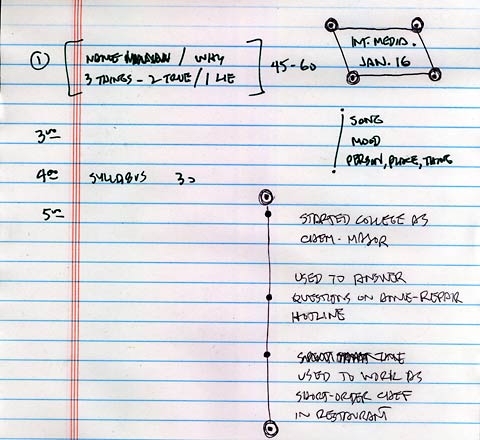 ① NAME / WHY
3 THINGS - 2 TRUE / 1 LIE
45-60
INT. MEDIA.
JAN. 16
SONG
MOOD
PERSON, PLACE, THING
3⁰⁰
4⁰⁰ SYLLABUS 30
5⁰⁰
STARTED COLLEGE AS
CHEM. MAJOR
USED TO ANSWER
QUESTIONS ON HOME-REPAIR
HOTLINE
USED TO WORK AS
SHORT-ORDER CHEF
IN RESTAURANT